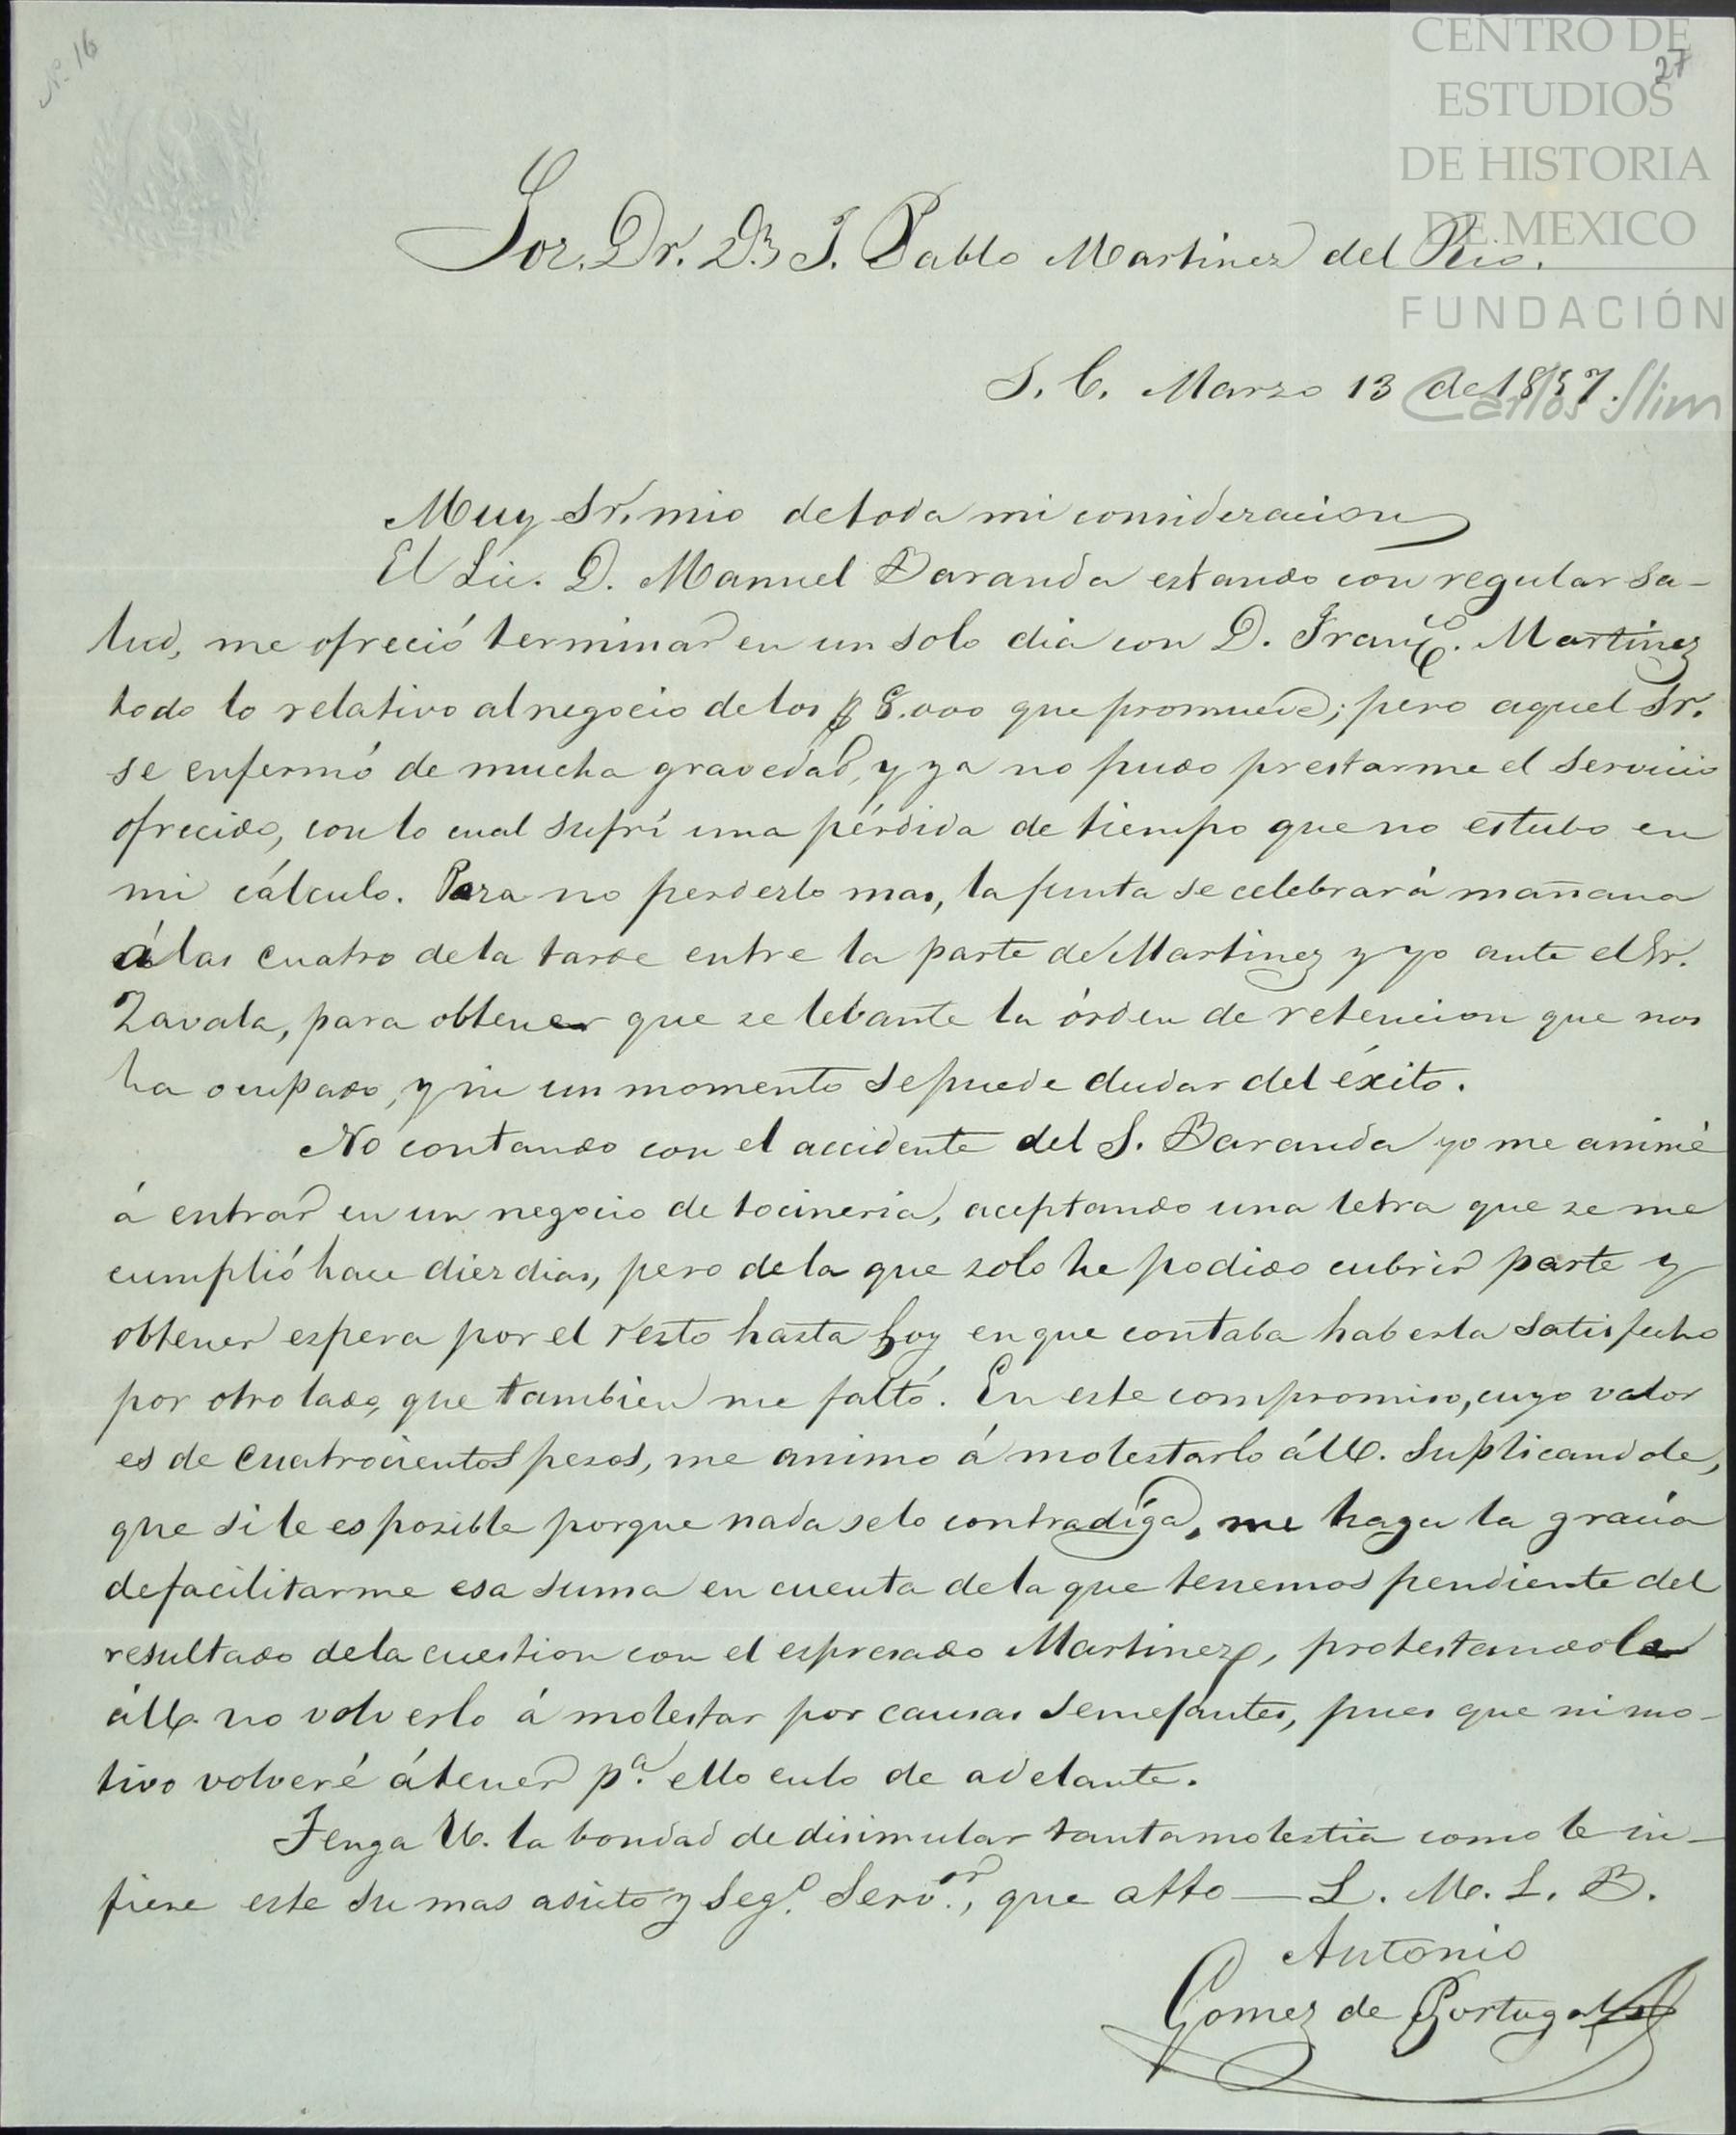 Nº 16
27
CENTRO DE
ESTUDIOS
DE HISTORIA
DE MEXICO
FUNDACIÓN
Carlos Slim
Sor. Dr. Dn J. Pablo Martinez del Rio.
S. C. Marzo 13 de 1857.
Muy Sr. mio de toda mi consideracion
El Lic. D. Manuel Baranda estando con regular sa-
lud, me ofreció terminar en un solo dia con D. Franco. Martinez
todo lo relativo al negocio de los $ 8.000 que promueve; pero aquel Sr.
se enfermó de mucha gravedad, y ya no pudo prestarme el servicio
ofrecido, con lo cual sufrí una pérdida de tiempo que no estubo en
mi cálculo. Para no perderlo mas, la junta se celebrará mañana
á las cuatro de la tarde entre la parte de Martinez y yo ante el Sr.
Zavala, para obtener que se lebante la órden de retencion que nos
ha ocupado, y ni un momento se puede dudar del éxito.
No contando con el accidente del S. Baranda yo me animé
á entrar en un negocio de tocineria, aceptando una letra que se me
cumplió hace diez dias, pero de la que solo he podido cubrir parte y
obtener espera por el resto hasta hoy en que contaba haberla satisfecho
por otro lado, que tambien me faltó. En este compromiso, cuyo valor
es de cuatrocientos pesos, me animo á molestarlo á U. suplicandole,
que si le es posible porque nada se lo contradiga, me haga la gracia
de facilitarme esa suma en cuenta de la que tenemos pendiente del
resultado de la cuestion con el espresado Martinez, protestandole
á U. no volverlo á molestar por causas semejantes, pues que ni mo-
tivo volveré á tener pa. ello en lo de adelante.
Tenga U. la bondad de disimular tanta molestia como le in-
fiere este su mas adicto y Sego. Servor., que atto — L. M. L. B.
Antonio
Gomez de Portugal